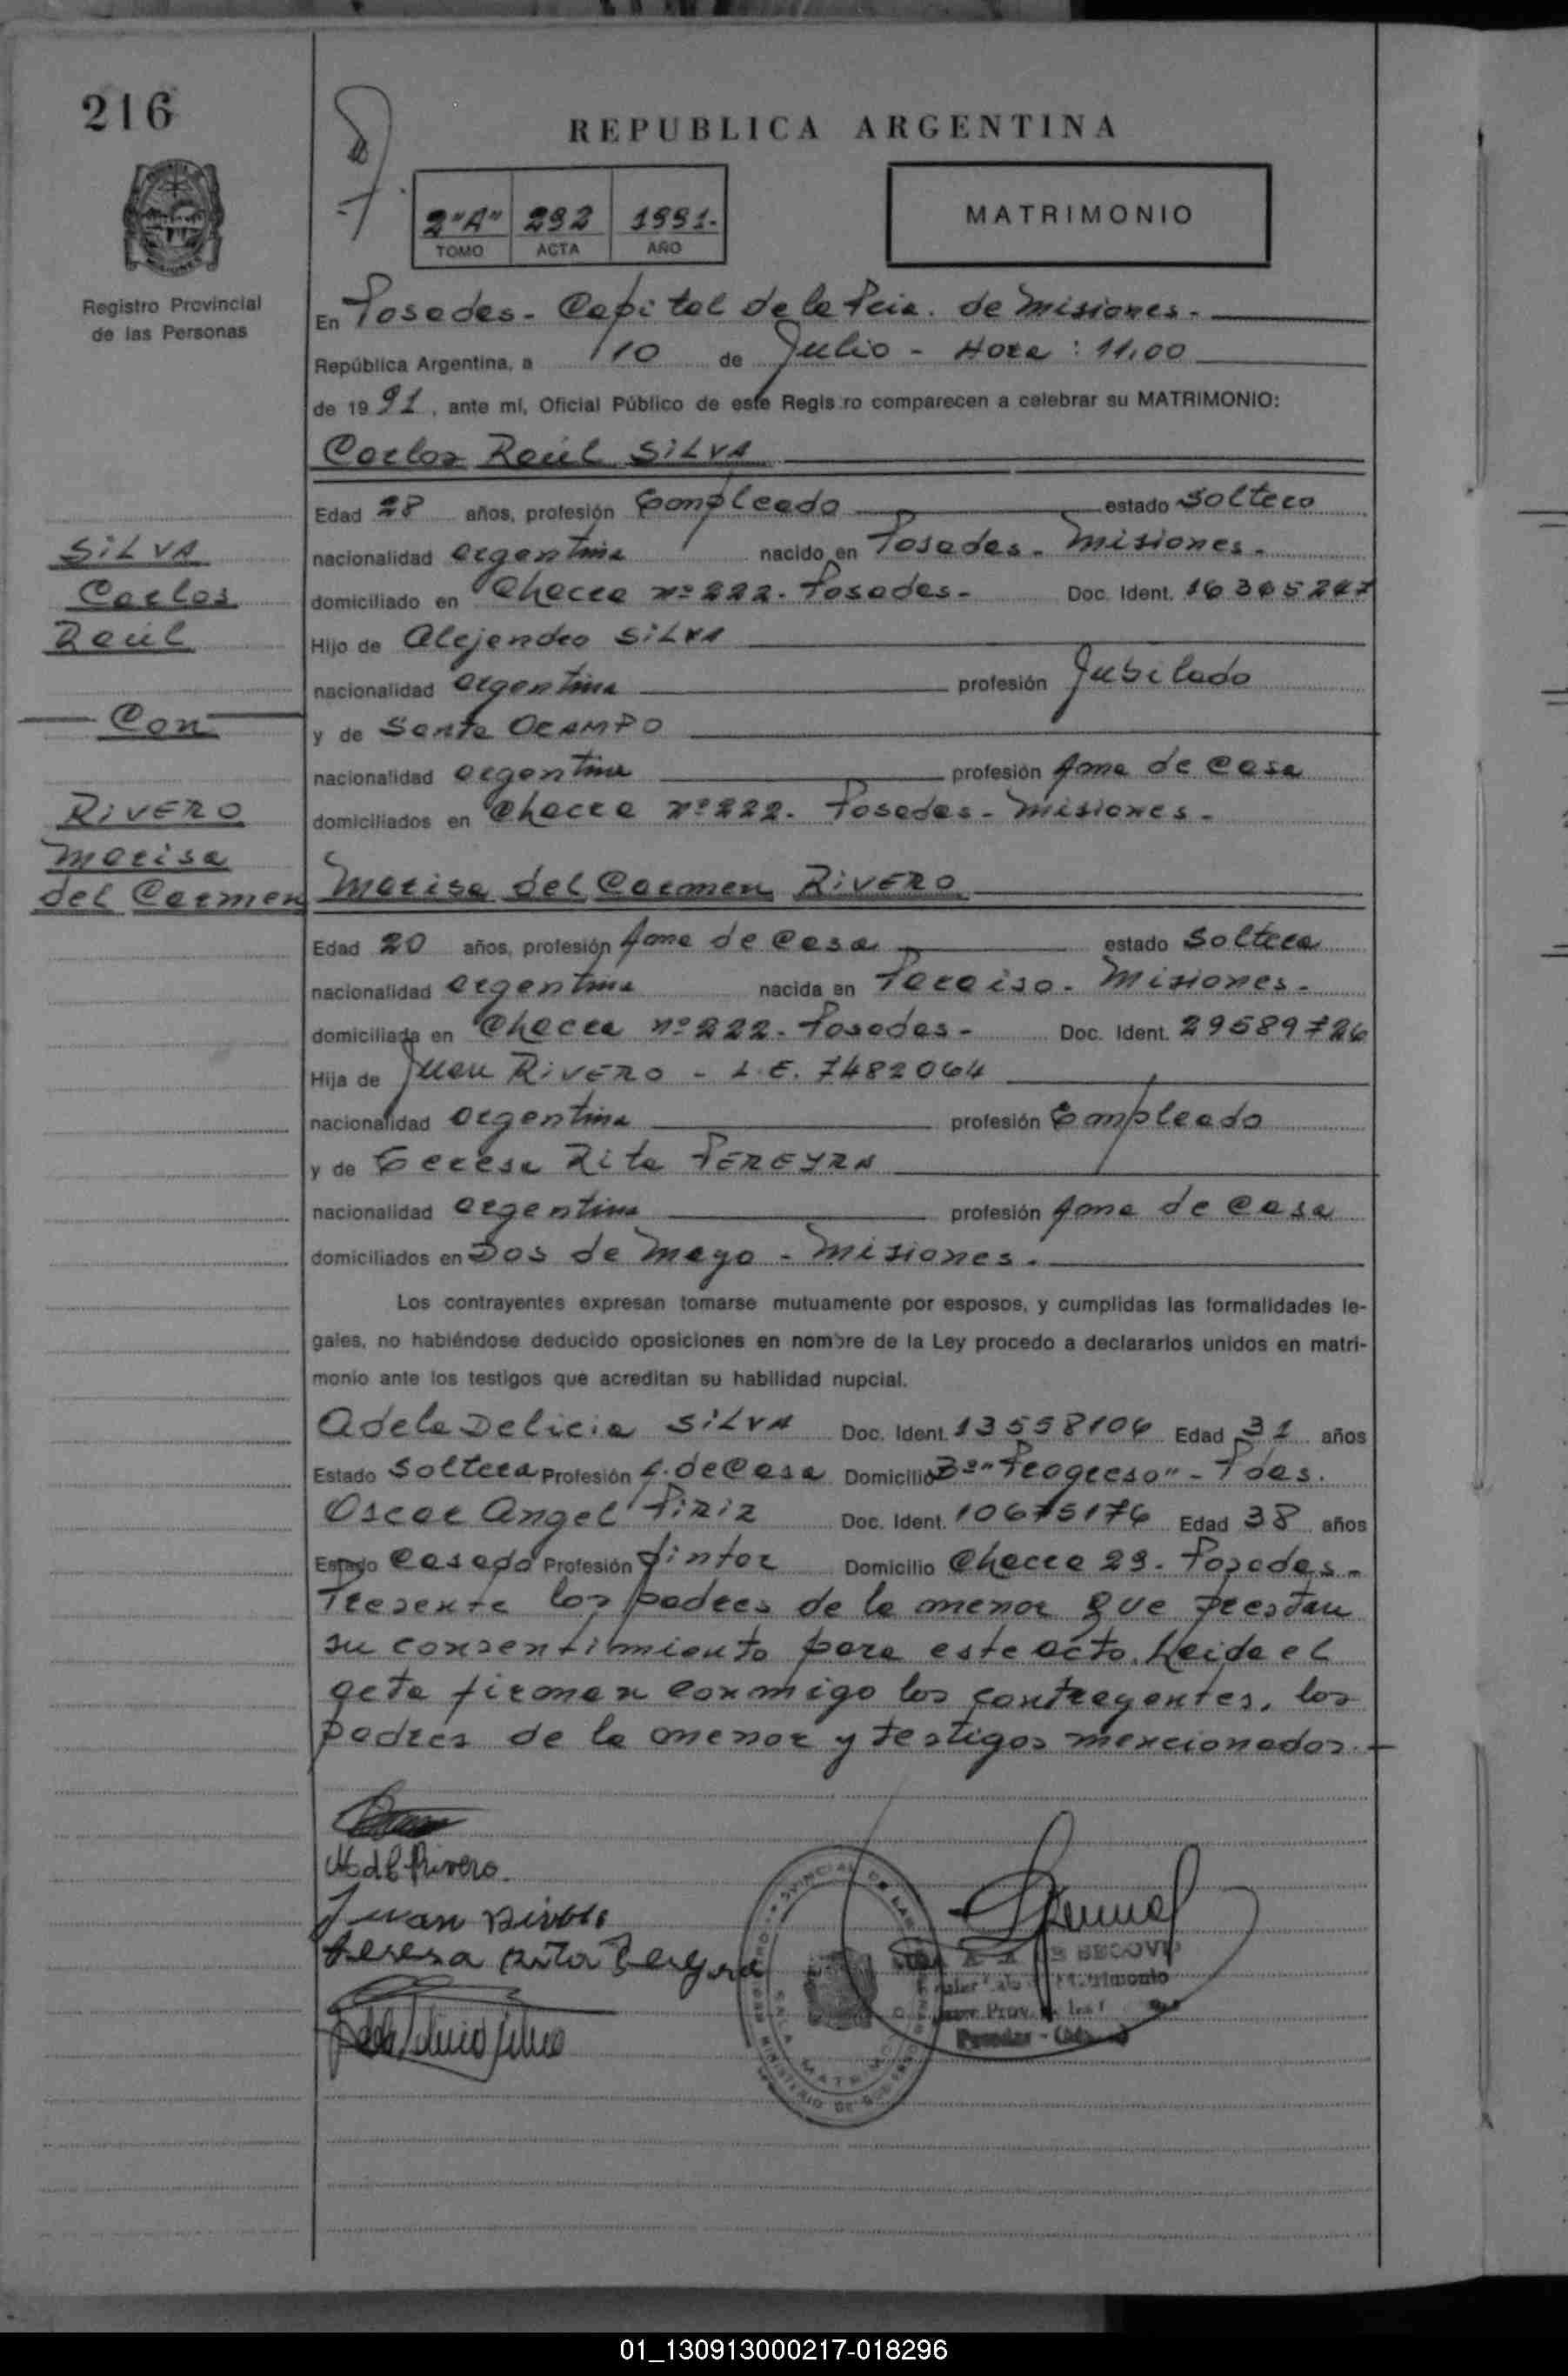 216
REPUBLICA ARGENTINA
2"A" 292 1991.-
TOMO ACTA AÑO
MATRIMONIO
Registro Provincial
de las Personas
En Posadas - Capital de la Pcia. de Misiones.-
República Argentina, a 10 de Julio - Hora: 11,00
de 19 91, ante mí, Oficial Público de este Registro comparecen a celebrar su MATRIMONIO:
Carlos Raúl SILVA
Edad 28 años, profesión Empleado estado Soltero
nacionalidad argentina nacido en Posadas - Misiones.-
domiciliado en Chacra nº 222. Posadas - Doc. Ident. 16365247
Hijo de Alejandro SILVA
nacionalidad argentina profesión Jubilado
y de Santa OCAMPO
nacionalidad argentina profesión Ama de Casa
domiciliados en Chacra nº 222. Posadas - Misiones -
SILVA
Carlos
Raúl
Con
RIVERO
Marisa
del Carmen
Marisa del Carmen RIVERO
Edad 20 años, profesión Ama de Casa estado Soltera
nacionalidad argentina nacida en Paraiso - Misiones -
domiciliada en Chacra nº 222. Posadas - Doc. Ident. 29589726
Hija de Juan RIVERO - L.E. 7482064
nacionalidad argentina profesión Empleado
y de Teresa Rita PEREYRA
nacionalidad argentina profesión Ama de Casa
domiciliados en Dos de Mayo - Misiones.
Los contrayentes expresan tomarse mutuamente por esposos, y cumplidas las formalidades le-
gales, no habiéndose deducido oposiciones en nombre de la Ley procedo a declararlos unidos en matri-
monio ante los testigos que acreditan su habilidad nupcial.
Adela Delicia SILVA Doc. Ident. 13558106 Edad 31 años
Estado Soltera Profesión A. de Casa Domicilio Bº "Progreso" - Pdas.
Oscar Angel PIRIZ Doc. Ident. 10675176 Edad 38 años
Estado Casado Profesión Pintor Domicilio Chacra 29. Posadas -
Presente los padres de la menor que prestan
su consentimiento para este acto. Leida el
acta firman conmigo los contrayentes, los
padres de la menor y testigos mencionados.-
MdC Rivero
Juan Rivero
Teresa Rita Pereyra
Matrimonio
Posadas
SALA MATRIM
MINISTERIO DE
01_130913000217-018296